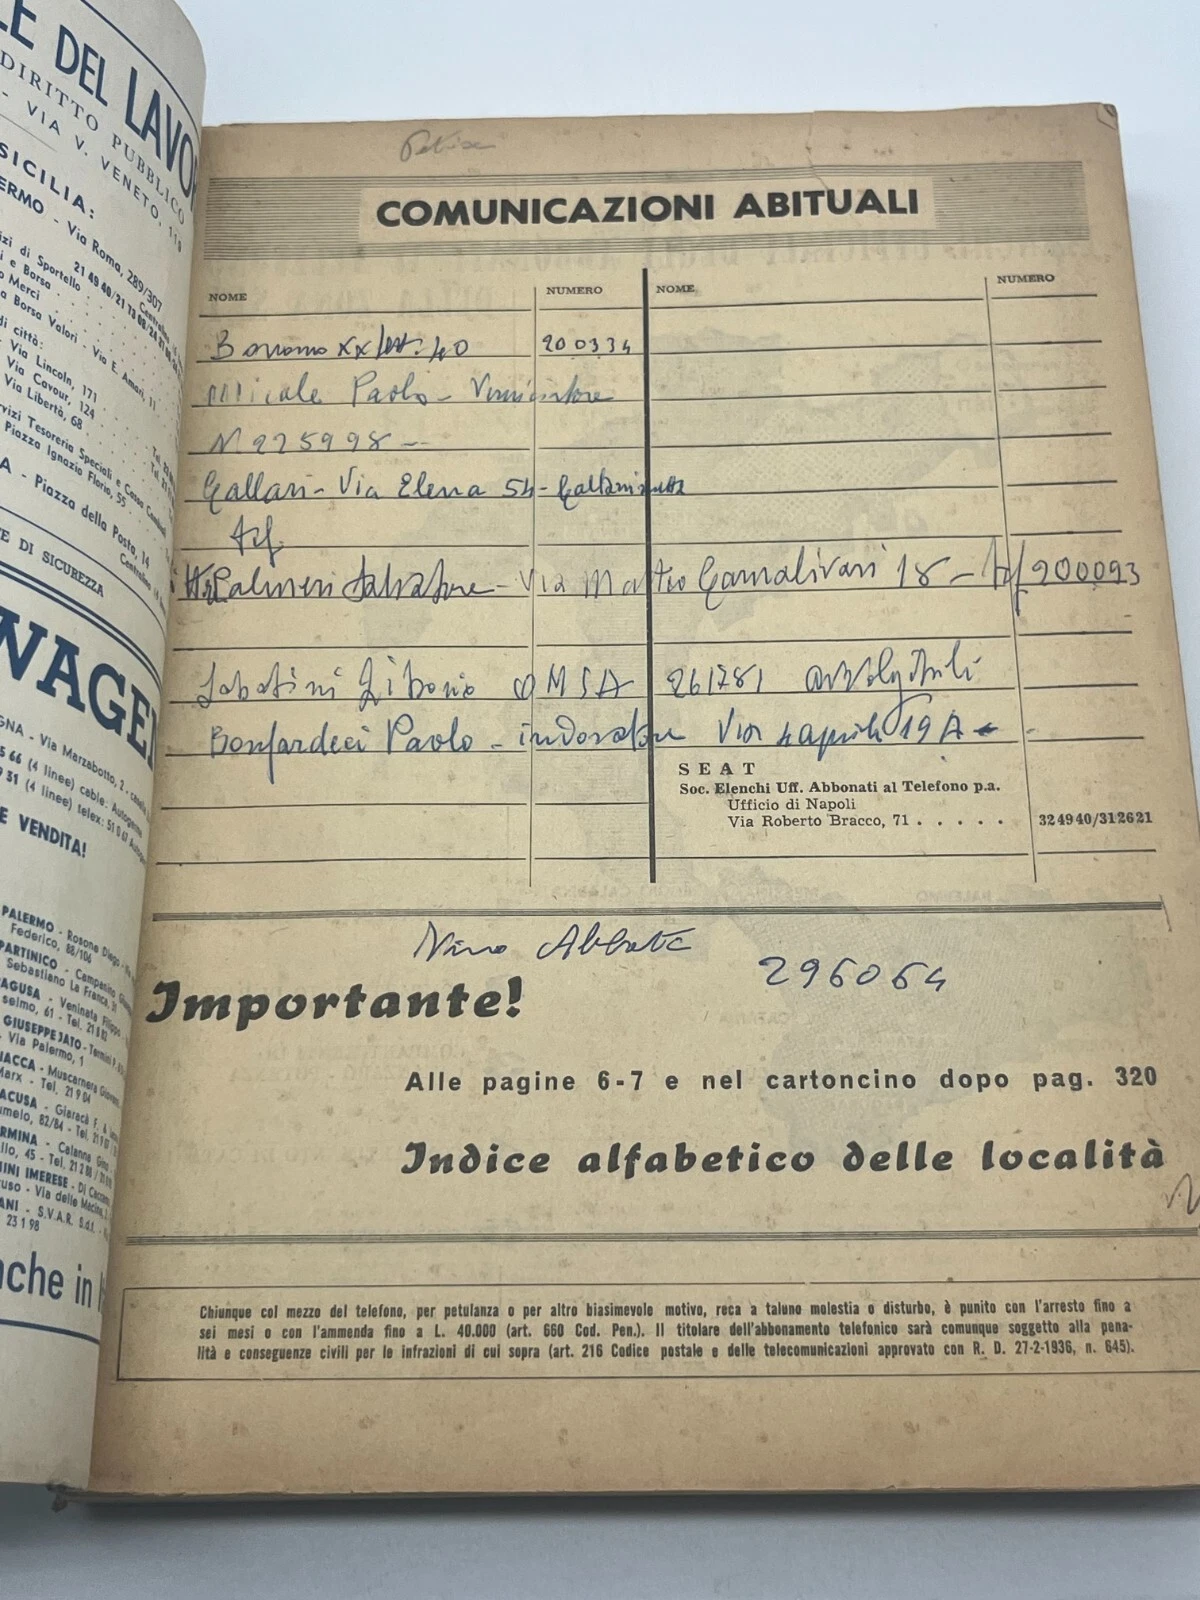 LE DEL LAVO
DIRITTO PUBBLICO
- VIA V. VENETO, 119
SICILIA:
ERMO - Via Roma, 289/307
izi di Sportello
i e Borsa
o Merci
a Borsa Valori - Via E. Amari, 11
di città:
Via Lincoln, 171
Via Cavour, 124
Via Libertà, 68
rvizi Tesoreria Speciali e Cassa
Piazza Ignazio Florio, 55
A - Piazza della Posta, 14
TE DI SICUREZZA
WAGE
GNA - Via Marzabotto, 2 -
5 66 (4 linee) cable:
9 31 (4 linee) telex:
E VENDITA!
PALERMO - Rosone Diego
Federico, 88/106
PARTINICO - Campanino
Sebastiano La Franca, 31
AGUSA - Veninata Filippo
selmo, 61 - Tel. 21883
GIUSEPPE JATO -
- Via Palermo, 1
IACCA - Muscarnera Giovanni
Marx - Tel. 21904
ACUSA - Giaracà F. &
umelo, 82/84 - Tel.
RMINA - Calanna Gino
llo, 45 - Tel.
INI IMERESE -
uso - Via delle
ANI - S.V.A.R. S.d.f.
23198
nche in
COMUNICAZIONI ABITUALI
NOME NUMERO NOME NUMERO
Bonomo XX 40 200334
Micale Paolo - Verniciatore
N° 225998 --
Gallari - Via Elena 54 - Caltanissetta
Palmeri Salvatore - Via Matteo Carnalivari 18 - 900093
Sabatini Liborio OMSA 261781
Bonfardeci Paolo - indoratore Via 4 aprile 19 A
SEAT
Soc. Elenchi Uff. Abbonati al Telefono p.a.
Ufficio di Napoli
Via Roberto Bracco, 71 . . . . . 324940/312621
Nino Abbate 296064
Importante!
Alle pagine 6-7 e nel cartoncino dopo pag. 320
Indice alfabetico delle località
Chiunque col mezzo del telefono, per petulanza o per altro biasimevole motivo, reca a taluno molestia o disturbo, è punito con l'arresto fino a
sei mesi o con l'ammenda fino a L. 40.000 (art. 660 Cod. Pen.). Il titolare dell'abbonamento telefonico sarà comunque soggetto alla pena-
lità e conseguenze civili per le infrazioni di cui sopra (art. 216 Codice postale e delle telecomunicazioni approvato con R. D. 27-2-1936, n. 645).